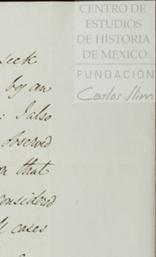 CENTRO DE
ESTUDIOS
DE HISTORIA
DE MEXICO
FUNDACIÓN
Carlos Slim
seek
by an
: I also
observed
that
considered
cases